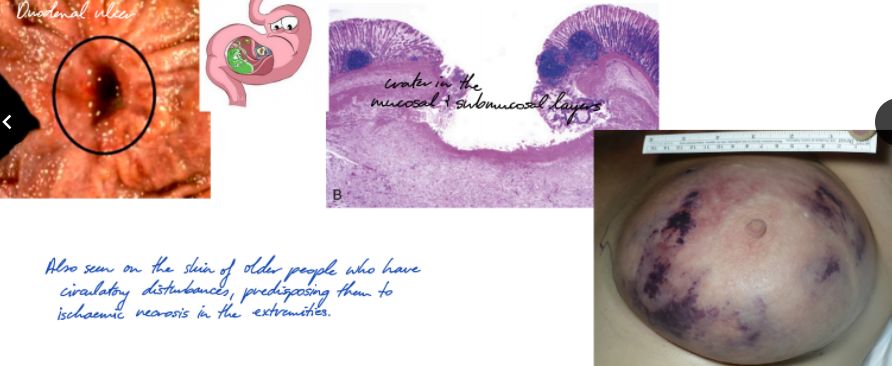 Duodenal ulcer
crater in the
mucosal & submucosal layers
B
Also seen on the skin of older people who have
circulatory disturbances, predisposing them to
ischaemic necrosis in the extremities.